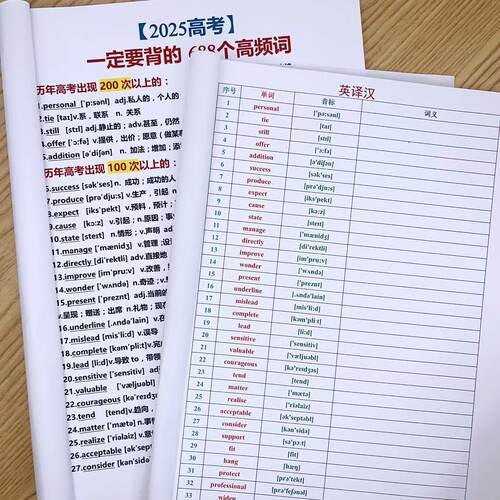 【2025高考】
一定要背的 688个高频词
历年高考出现 200 次以上的：
1.personal ['pɜːsənl] adj.私人的，个人的
2.tie [taɪ]v.系，联系 n. 关系
3.still [stɪl] adj.静止的；adv.甚至，仍然
4.offer ['ɔːfə] v.提供，出价；愿意（做某
5.addition [ə'diʃən] n. 加法；增加；添
历年高考出现 100 次以上的：
6.success [sək'ses] n. 成功；成功的人
7.produce [prə'djuːs] v.生产，引起 n
8.expect [iks'pekt] v.预料，预计；
9.cause [kɔːz] v.引起；n.原因；事
10.state [steɪt] n.情形；v.声明 a
11.manage ['mænidʒ] v.管理；设
12.directly [di'rektli] adv.直接地
13.improve [im'pruːv] v.改善，
14.wonder ['wʌndə] n.奇迹；v.
15.present ['preznt] adj.当前的
v.呈现；赠送；出席 n.礼物；现
16.underline [ˌʌndə'lain] v.
17.mislead [mis'liːd] v.误导
18.complete [kəm'pliːt] v.完
19.lead [liːd]v.导致 to，带领
20.sensitive ['sensitiv] adj
21.valuable ['væljuəbl]
22.courageous [kə'reɪdʒəs]
23.tend [tend]v.趋向，
24.matter ['mætə] n.事
25.realize ['riəlaiz] v.意
26.acceptable [ək'septəbl
27.consider [kən'sidə]
英译汉
序号 单词 音标 词义
1 personal ['pɜːsənl]
2 tie [taɪ]
3 still [stɪl]
4 offer ['ɔːfə]
5 addition [ə'diʃən]
6 success [sək'ses]
7 produce [prə'djuːs]
8 expect [iks'pekt]
9 cause [kɔːz]
10 state [steɪt]
11 manage ['mænidʒ]
12 directly [di'rektli]
13 improve [im'pruːv]
14 wonder ['wʌndə]
15 present ['preznt]
16 underline [ˌʌndə'lain]
17 mislead [mis'liːd]
18 complete [kəm'pliːt]
19 lead [liːd]
20 sensitive ['sensitiv]
21 valuable ['væljuəbl]
22 courageous [kə'resdʒəs]
23 tend [tend]
24 matter ['mætə]
25 realise ['riəlaiz]
26 acceptable [ək'septəbl]
27 consider [kən'sidə]
28 support [sə'pɔːt]
29 fit [fit]
30 hang [hæŋ]
31 protect [prə'tekt]
32 professional [prə'feʃənəl]
33 widen